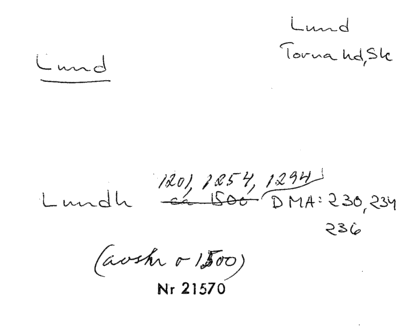 Lund
Lund
Torna hd, Sk
1201, 1254, 1294
Lundh ca 1500 DMA: 230, 234
236
(avskr o 1500)
Nr 21570